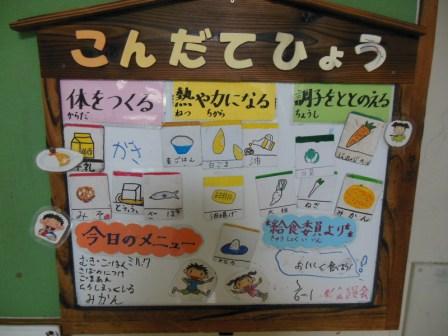 こんだてひょう
体をつくる
からだ
熱や力になる
ねつ ちから
調子をととのえる
ちょうし
かき
牛乳
麦ごはん
白ごま
油
みそ
とうふ
さば
大根
ねぎ
みかん
今日のメニュー
むぎごはんミルク
さばのにつけ
ごまあえ
みかん
給食委員より
きゅうしょくいいん
おいしく食べよう!
6-1